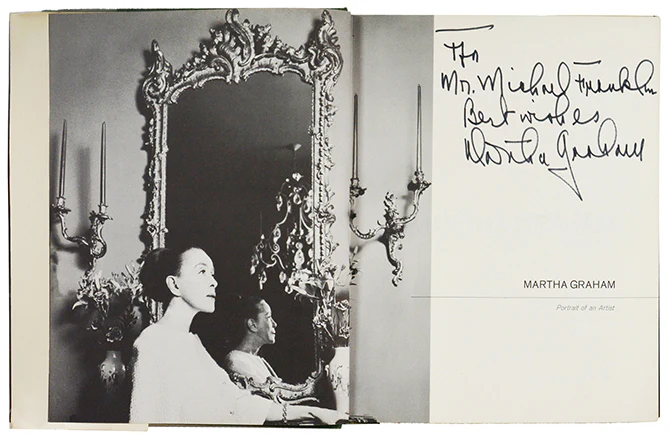 To
Mr. Michael Franklin
Best wishes
Martha Graham
MARTHA GRAHAM
Portrait of an Artist